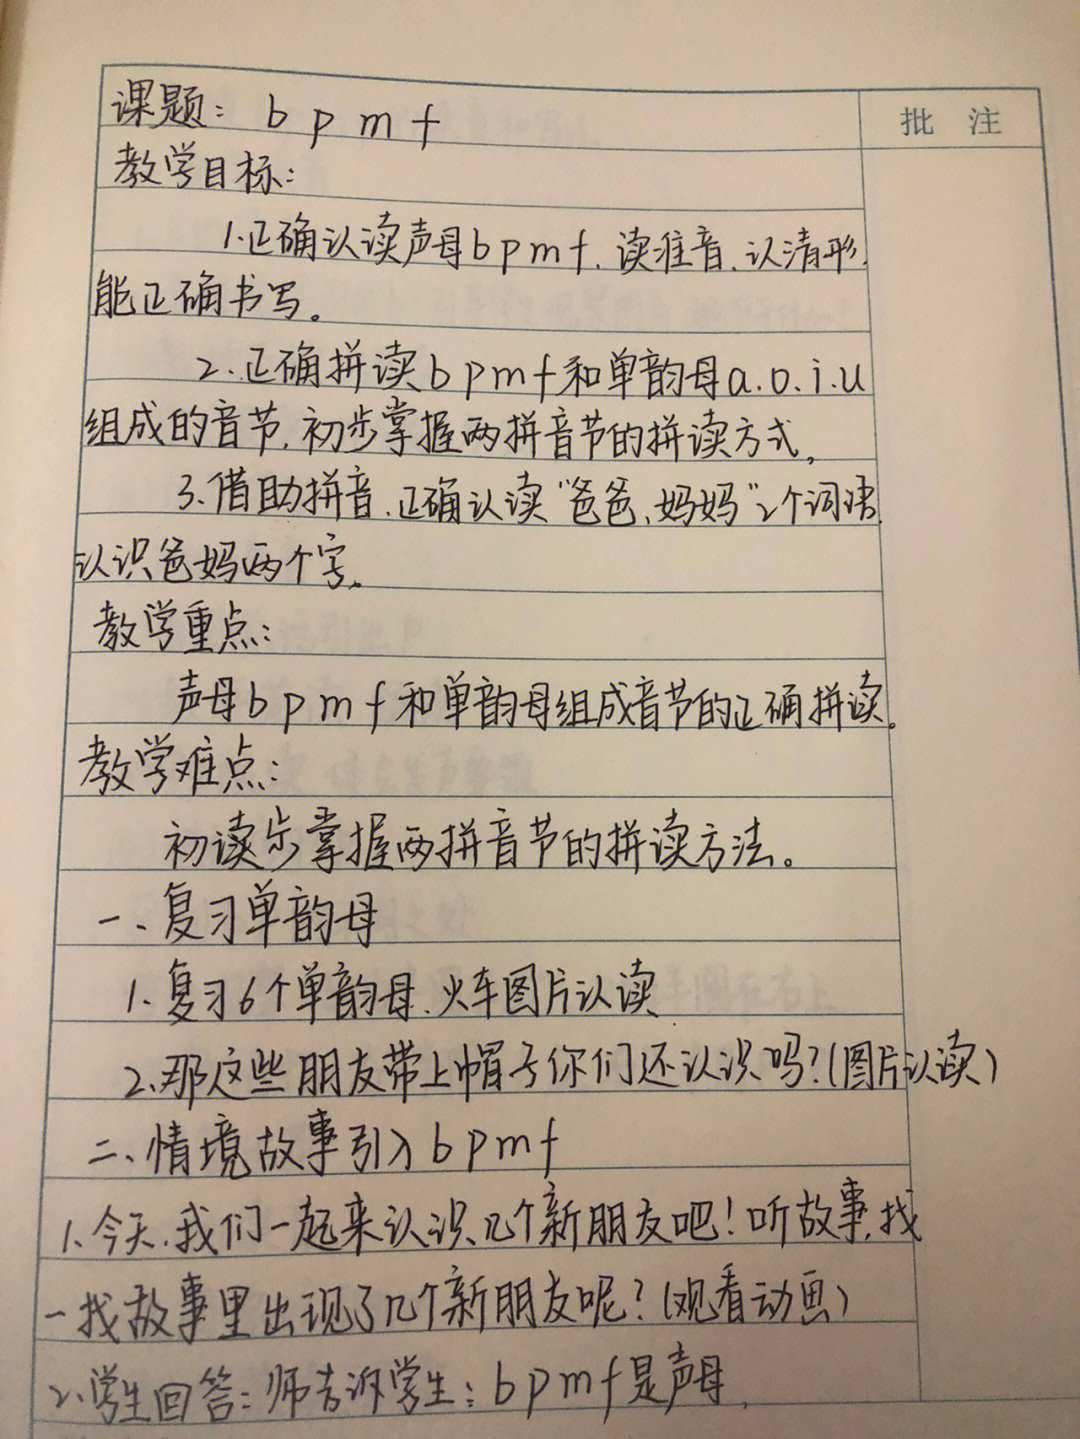 课题：b p m f
批 注
教学目标：
1.正确认读声母b p m f、读准音、认清形,
能正确书写。
2.正确拼读b p m f和单韵母a.o.i.u
组成的音节,初步掌握两拼音节的拼读方式,
3.借助拼音,正确认读“爸爸、妈妈”2个词语,
认识爸妈两个字。
教学重点：
声母b p m f和单韵母组成音节的正确拼读。
教学难点：
初读步掌握两拼音节的拼读方法。
一、复习单韵母
1.复习6个单韵母、火车图片认读
2.那这些朋友带上帽子你们还认识吗?(图片认读)
二、情境故事引入b p m f
1.今天,我们一起来认识几个新朋友吧!听故事,找
一找故事里出现了几个新朋友呢?(观看动画)
2.学生回答：师告诉学生：b p m f是声母,